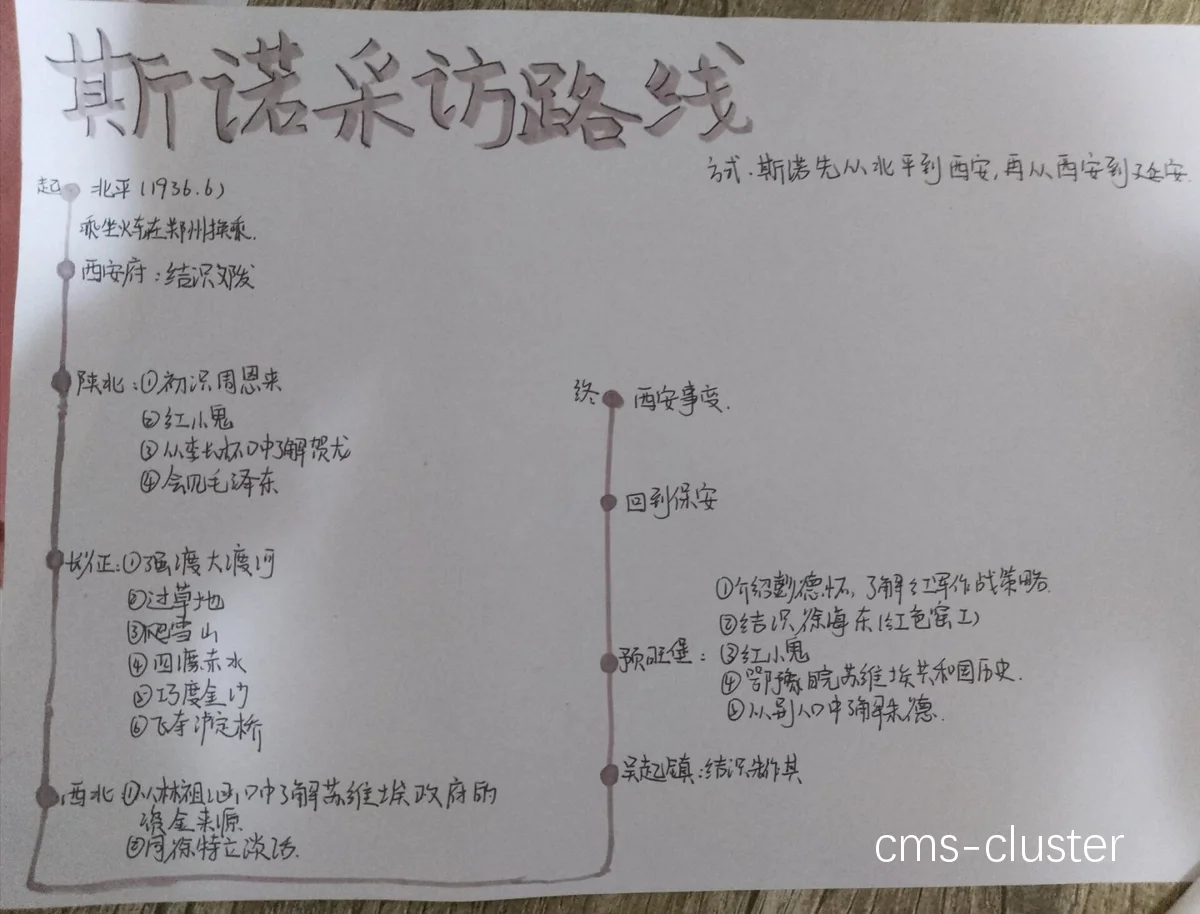 斯诺采访路线
方式.斯诺先从北平到西安,再从西安到延安.
起 北平(1936.6)
乘坐火车在郑州换乘.
西安府:结识邓发
陕北:①初识周恩来
②红小鬼
③从李长林口中了解贺龙
④会见毛泽东
长征:①强渡大渡河
②过草地
③爬雪山
④四渡赤水
⑤巧度金沙
⑥飞夺泸定桥
西北:①从林祖涵口中了解苏维埃政府的
资金来源
②同徐特立谈话.
终 西安事变.
回到保安
预旺堡:
①介绍彭德怀,了解红军作战策略.
②结识徐海东(红色窑工)
③红小鬼
④鄂豫皖苏维埃共和国历史.
⑤从别人口中了解朱德.
吴起镇:结识朱作其
cms-cluster